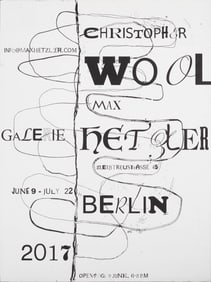 CHRISTOPHER
INFO@MAXHETZLER.COM
WOOL
MAX
GALERIE
HETZLER
BLEIBTREUSTRASSE 45
JUNE 9 - JULY 22
BERLIN
2017
OPENING: 9 JUNE, 6-8 PM